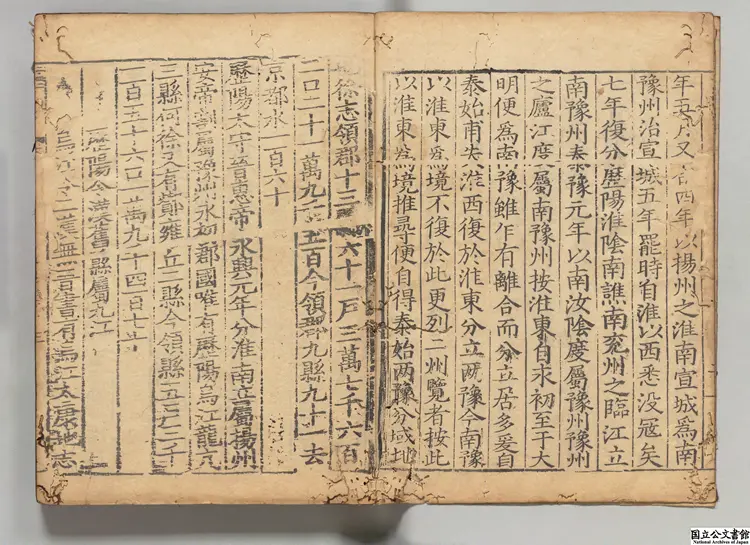 年五月又省四年以揚州之淮南宣城爲南
豫州治宣城五年罷時自淮以西悉没冦矣
七年復分歷陽淮陰南譙南兖州之臨江立
南豫州泰豫元年以南汝陰度屬豫州豫州
之廬江度屬南豫州按淮東自永初至于大
明便爲南豫雖乍有離合而分立居多爰自
泰始甫失淮西復於淮東分立兩豫今南豫
以淮東爲境不復於此更列二州覽者按此
以淮東爲境推尋便自得泰始兩豫分域地
徐志領郡十三 六十一戸三萬七千六百
二口二十一萬九千五百今領郡九縣九十一去
京都水一百六十
歷陽太守晉惠帝永興元年分淮南立屬揚州
安帝割屬豫州永初郡國唯有歷陽烏江龍亢
三縣何徐又有酇雍丘二縣今領縣五戸三千
一百五十六口一萬九千四百七十
歷陽令漢舊縣屬九江
烏江令二漢無晉書有烏江太康地志
国立公文書館
National Archives of Japan